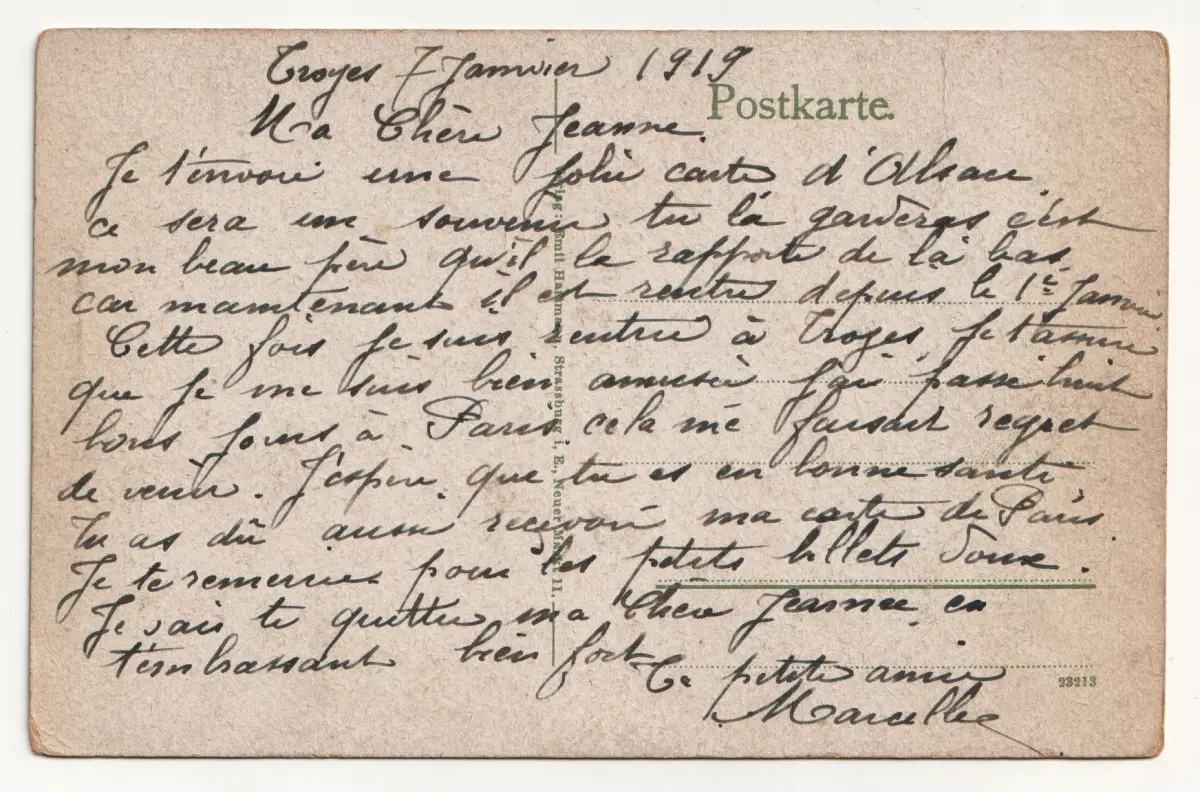 Troyes 7 Janvier 1919
Postkarte.
Ma Chère Jeanne.
Je t'envoie une jolie carte d'Alsace
ce sera un souvenir tu la garderas c'est
mon beau père qu'il la rapporte de là bas
car maintenant il est rentré depuis le 1er Janvier
Cette fois je suis rentrée à Troyes Je t'assure
que je me suis bien amusée j'ai passé huit
bons jours à Paris cela me faisait regret
de venir. J'espère que tu es en bonne santé
Tu as dû aussi recevoir ma carte de Paris
Je te remercie pour les petits billets doux.
Je vais te quitter ma Chère Jeanne en
t'embrassant bien fort
Ta petite amie
Marcelle
Verlag: Emil Hartmann, Strassburg i. E., Neuer Markt 11.
23213